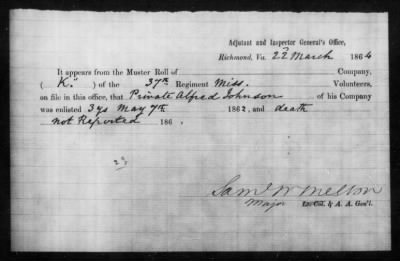 Adjutant and Inspector General's Office,
Richmond, Va. 22 March 1864
It appears from the Muster Roll of Company,
( "K." ) of the 37th Regiment Miss. Volunteers,
on file in this office, that Private Alfred Johnson of his Company
was enlisted 3ys May 7th 1862, and death
not Reported 186
23
Saml W Melton
Major Lt. Col. & A. A. Gen'l.